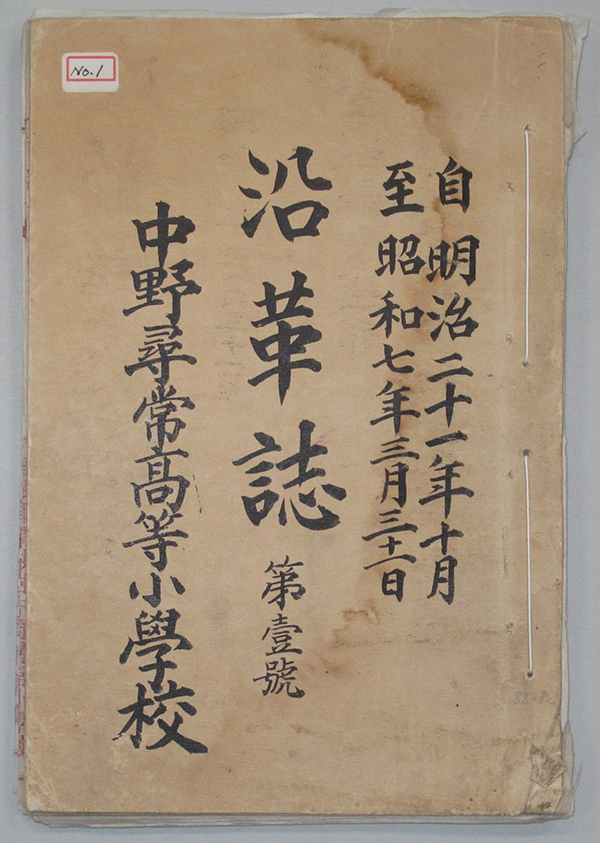 No.1
自明治二十一年十月
至昭和七年三月三十一日
沿革誌 第壹號
中野尋常高等小學校